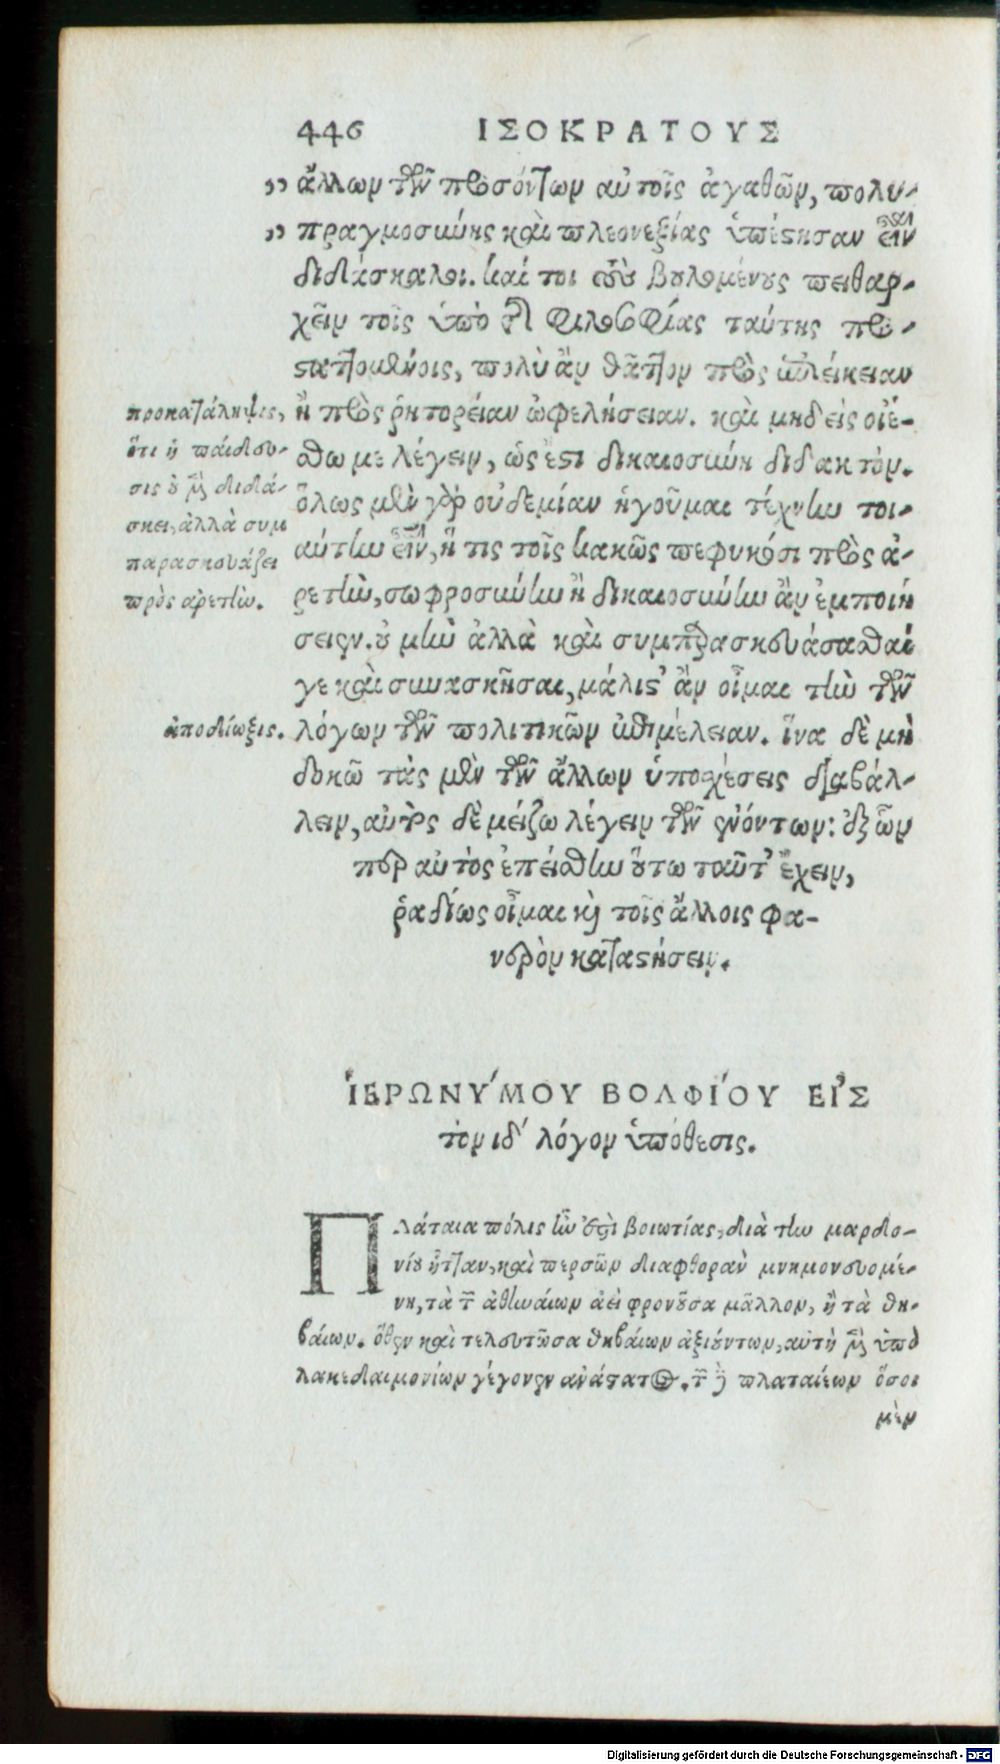 446 ΙΣΟΚΡΑΤΟΥΣ
„ ἄλλων τῶν προσόντων αὐτοῖς ἀγαθῶν, πολυ-
„ πραγμοσύνης καὶ πλεονεξίας ὑπέστησαν εἶναι
διδάσκαλοι. καί τοι τοὺς βουλομένους πειθαρ-
χεῖν τοῖς ὑπὸ τῆς φιλοσοφίας ταύτης προ-
σταττομένοις, πολὺ ἂν θᾶττον πρὸς ἐπιείκειαν
ἢ πρὸς ῥητορείαν ὠφελήσειαν. καὶ μηδεὶς οἰέ-
σθω με λέγειν, ὡς ἔστι δικαιοσύνη διδακτόν.
ὅλως μὲν γὰρ οὐδεμίαν ἡγοῦμαι τέχνην τοι-
αύτην εἶναι, ἥ τις τοῖς κακῶς πεφυκόσι πρὸς ἀ-
ρετὴν, σωφροσύνην ἢ δικαιοσύνην ἂν ἐμποιή
σειεν. οὐ μὴν ἀλλὰ καὶ συμπαρασκευάσασθαί
γε καὶ συνασκῆσαι, μάλιστ' ἂν οἶμαι τὴν τῶν
λόγων τῶν πολιτικῶν ἐπιμέλειαν. ἵνα δὲ μὴ
δοκῶ τὰς μὲν τῶν ἄλλων ὑποσχέσεις διαβάλ-
λειν, αὐτὸς δὲ μείζω λέγειν τῶν ἐνόντων: ἐξ ὧν
περ αὐτὸς ἐπείσθην οὕτω ταῦτ' ἔχειν,
ῥαδίως οἶμαι καὶ τοῖς ἄλλοις φα-
νερὸν καταστήσειν.
προκατάληψις,
ὅτι ἡ παίδευ-
σις οὐ μὲν διδά-
σκει, ἀλλὰ συμ
παρασκευάζει
πρὸς ἀρετὴν.
ἀποδίωξις.
ἹΕΡΩΝΎΜΟΥ ΒΟΛΦΊΟΥ ΕἸΣ
τὸν ιδ΄ λόγον ὑπόθεσις.
Πλάταια πόλις ἦν ἐπὶ βοιωτίας, διὰ τὴν μαρδο-
νίου ἧτταν, καὶ περσῶν διαφθορὰν μνημονευομέ-
νη, τὰ τῶν ἀθηναίων ἀεὶ φρονοῦσα μᾶλλον, ἢ τὰ θη-
βαίων. ὅθεν καὶ τελευτῶσα θηβαίων ἀξιούντων, αὐτὴ μὲν ὑπὸ
λακεδαιμονίων γέγονεν ἀνάστατος. τῶν δὲ πλαταιέων ὅσοι
μὲν
Digitalisierung gefördert durch die Deutsche Forschungsgemeinschaft - DFG